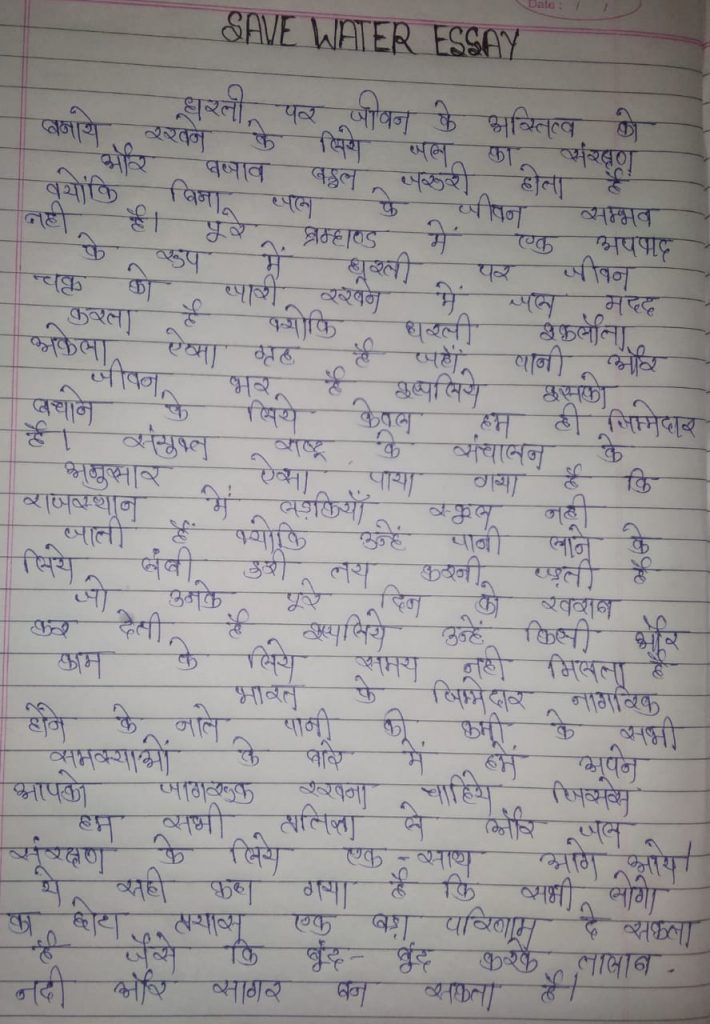 Date: / /
SAVE WATER ESSAY
धरती पर जीवन के अस्तित्व को
बनाये रखने के लिये जल का संरक्षण
और बचाव बहुत जरुरी होता है
क्योंकि बिना जल के जीवन सम्भव
नही है। पूरे ब्रम्हाण्ड में एक अपवाद
के रुप में धरती पर जीवन
चक्र को जारी रखने में जल मदद
करता है क्योकि धरती इकलौता
अकेला ऐसा ग्रह है जहाँ पानी और
जीवन भर है इसलिये इसको
बचाने के लिये केवल हम ही जिम्मेदार
है। संयुक्त राष्ट्र के संचालन के
अनुसार ऐसा पाया गया है कि
राजस्थान में लड़कियाँ स्कुल नही
जाती हैं क्योकि उन्हें पानी लाने के
लिये लंबी दुरी तय करनी पड़ती है
जो उनके पूरे दिन को खराब
कर देती है इसलिये उन्हें किसी और
काम के लिये समय नही मिलता है
भारत के जिम्मेदार नागरिक
होने के नाते पानी की कमी के सभी
समस्याओं के बारे में हमें अपने
आपको जागरुक रखना चाहिये जिससे
हम सभी प्रतिज्ञा ले और जल
संरक्षण के लिये एक-साथ आगे आये।
ये सही कहा गया है कि सभी लोगो
का छोटा प्रयास एक बड़ा परिणाम दे सकता
है जैसे कि बूंद-बूंद करके तालाब
नदी और सागर बन सकता है।